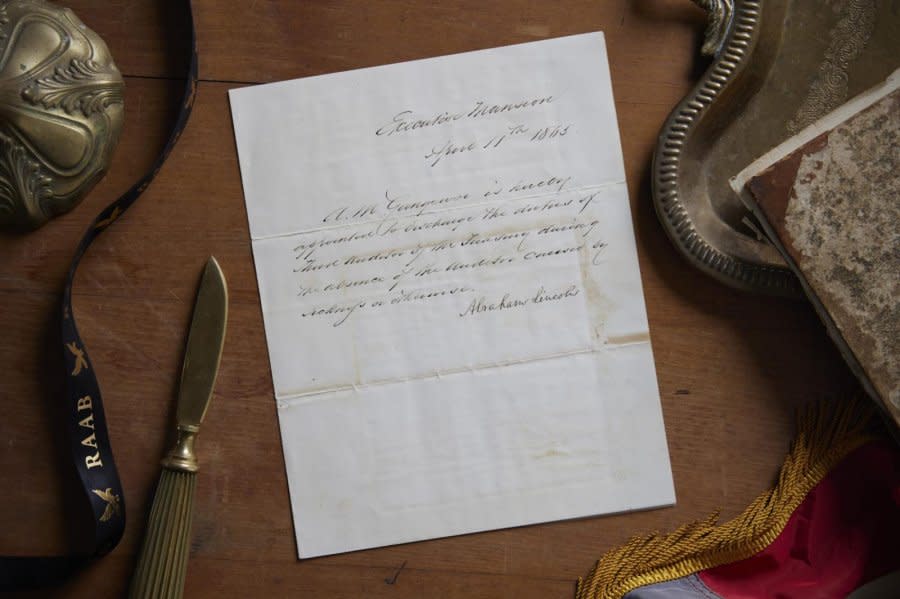 Executive Mansion
April 11th 1865
A. M. Gangewer is hereby
appointed to discharge the duties of
Third Auditor of the Treasury during
the absence of the Auditor caused by
sickness or otherwise.
Abraham Lincoln
RAAB